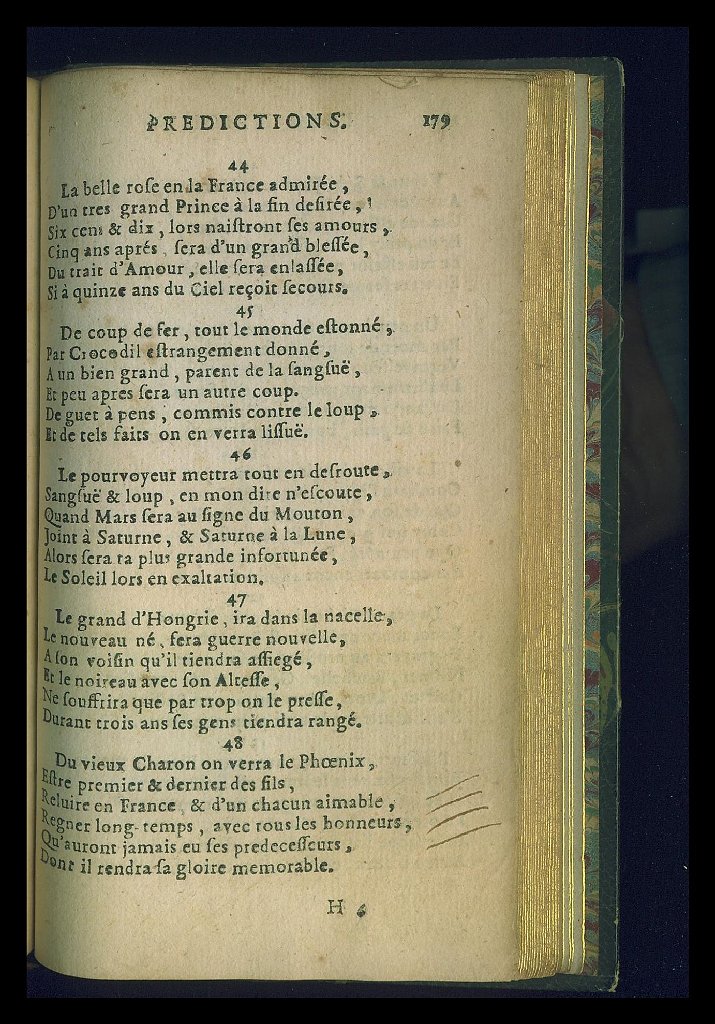 PREDICTIONS. 179
44
La belle roſe en la France admirée,
D'un tres grand Prince à la fin deſirée,
Six cens & dix, lors naiſtront ſes amours,
Cinq ans aprés, ſera d'un grand bleſſée,
Du trait d'Amour, elle ſera enlaſſée,
Si à quinze ans du Ciel reçoit ſecours.
45
De coup de fer, tout le monde eſtonné,
Par Crocodil eſtrangement donné,
A un bien grand, parent de la ſangſuë,
Et peu apres ſera un autre coup.
De guet à pens, commis contre le loup,
Et de tels faits on en verra liſſuë.
46
Le pourvoyeur mettra tout en deſroute,
Sangſuë & loup, en mon dire n'eſcoute,
Quand Mars ſera au ſigne du Mouton,
Joint à Saturne, & Saturne à la Lune,
Alors ſera ta plus grande infortunée,
Le Soleil lors en exaltation.
47
Le grand d'Hongrie, ira dans la nacelle,
Le nouveau né, fera guerre nouvelle,
A ſon voiſin qu'il tiendra aſſiegé,
Et le noireau avec ſon Alteſſe,
Ne ſouffrira que par trop on le preſſe,
Durant trois ans ſes gens tiendra rangé.
48
Du vieux Charon on verra le Phœnix,
Eſtre premier & dernier des fils,
Reluire en France, & d'un chacun aimable,
Regner long-temps, avec tous les honneurs,
Qu'auront jamais eu ſes predeceſſeurs,
Dont il rendra ſa gloire memorable.
H 6